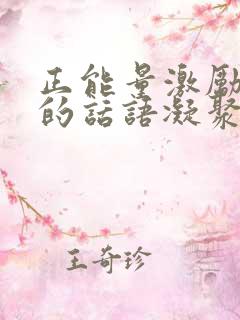 正能量激励
的話語凝聚
王奇珍